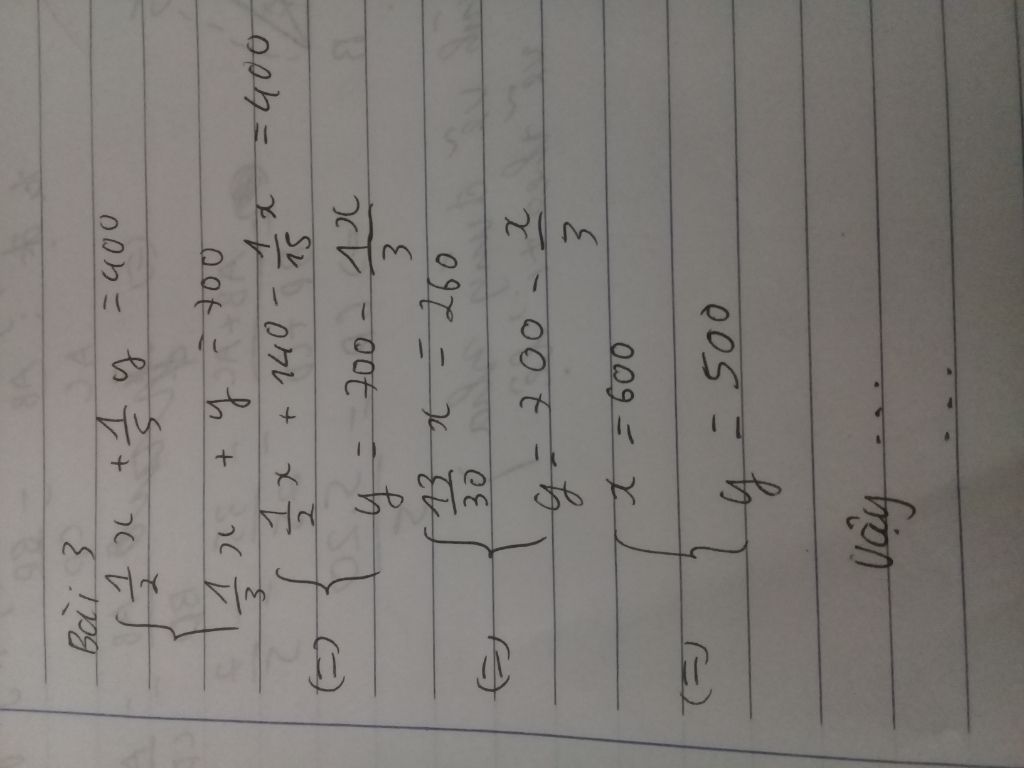 Bài 3
{ 1/2 x + 1/5 y = 400
1/3 x + y = 700
(=) { 1/2 x + 140 - 1/15 x = 400
y = 700 - 1x/3
(=) { 13/30 x = 260
y = 700 - x/3
(=) { x = 600
y = 500
Vậy ...
...